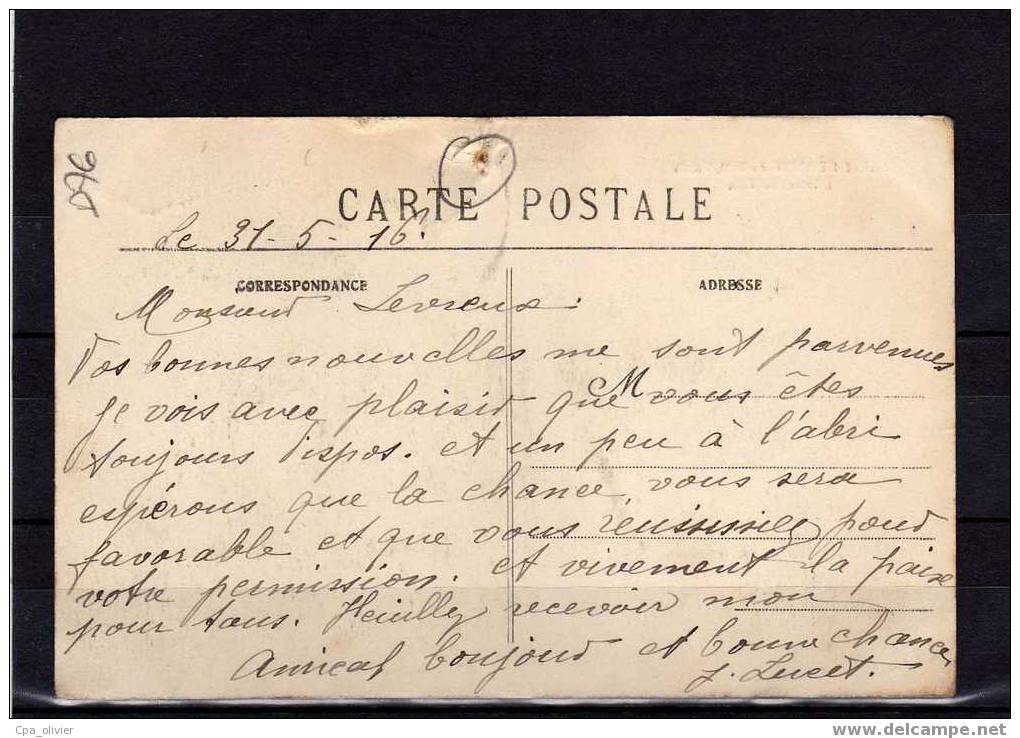 D76
CARTE POSTALE
Le 31-5-16.
CORRESPONDANCE
ADRESSE
Monsieur Levreux.
Vos bonnes nouvelles me sont parvenues
M
je vois avec plaisir que vous êtes
toujours dispos. et un peu à l'abri
espérons que la chance, vous sera
favorable et que vous réussissiez pour
votre permission. et vivement la paix
pour tous. Veuillez recevoir mon
Amical bonjour et bonne chance
J. Lucet.
Cpa_olivier
www.delcampe.net